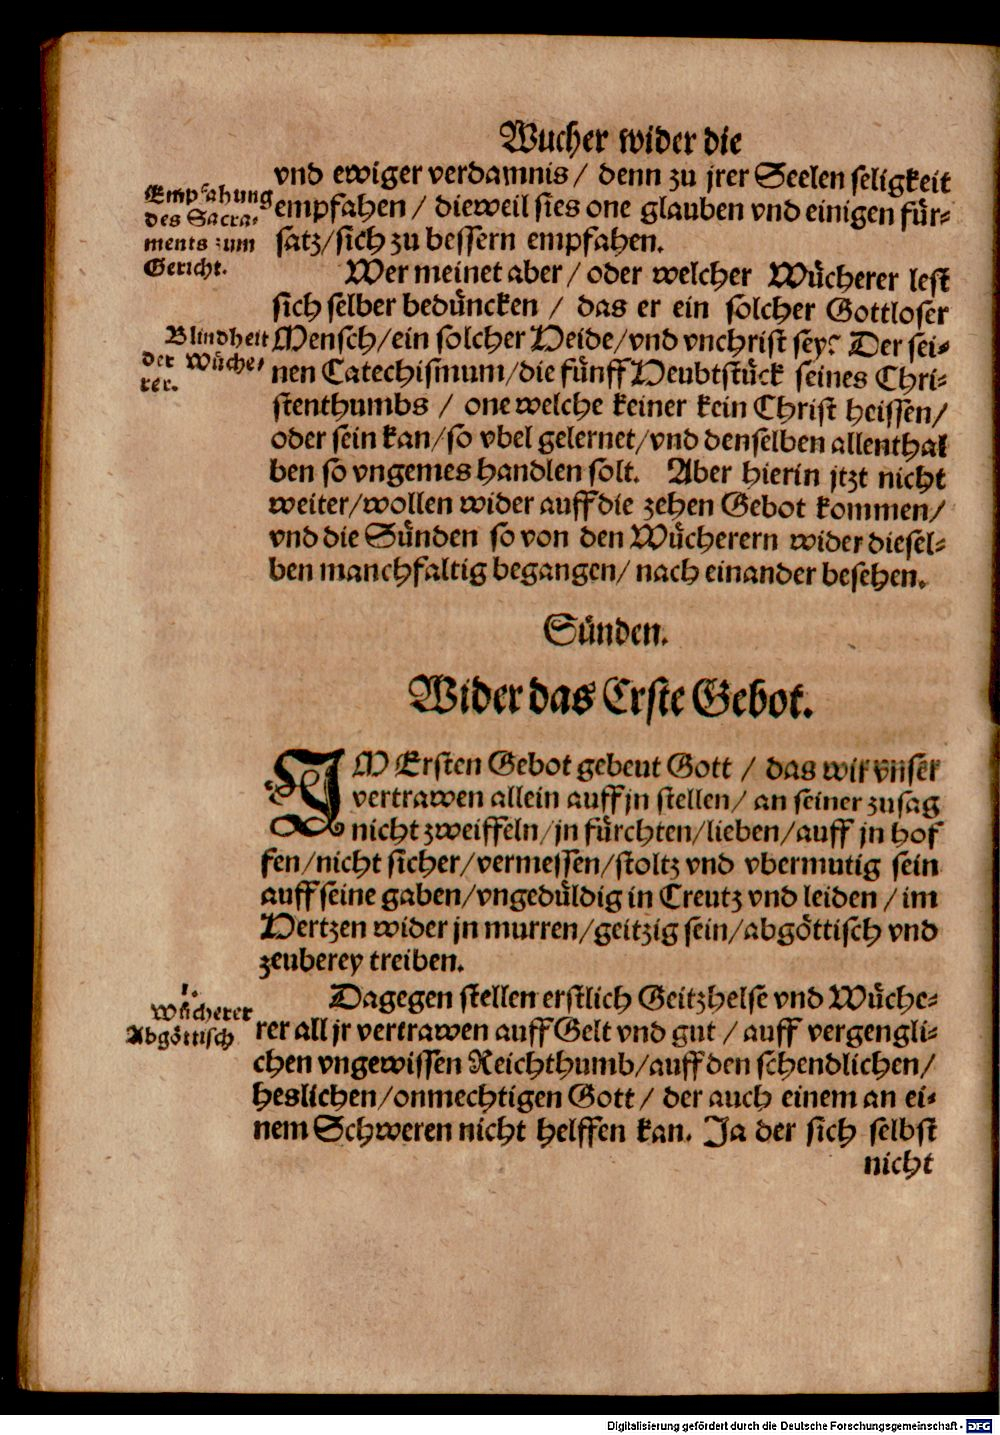 Wucher wider die
vnd ewiger verdamnis / denn zu jrer Seelen seligkeit
empfahen / dieweil sies one glauben vnd einigen für-
satz / sich zu bessern empfahen.
Empfahung
des Sacra-
ments zum
Gericht.
Wer meinet aber / oder welcher Wücherer lest
sich selber bedüncken / das er ein solcher Gottloser
Mensch / ein solcher Heide / vnd vnchrist sey? Der sei-
nen Catechismum / die fünff Heubtstück seines Chri-
stenthumbs / one welche keiner kein Christ heissen /
oder sein kan / so vbel gelernet / vnd denselben allenthal
ben so vngemes handlen solt. Aber hierin jtzt nicht
weiter / wollen wider auff die zehen Gebot kommen /
vnd die Sünden so von den Wücherern wider diesel-
ben manchfaltig begangen / nach einander besehen.
Blindheit
der Wüche-
rer.
Sünden.
Wider das Erste Gebot.
IM Ersten Gebot gebeut Gott / das wir vnser
vertrawen allein auff jn stellen / an seiner zusag
nicht zweiffeln / jn fürchten / lieben / auff jn hof
fen / nicht sicher / vermessen / stoltz vnd vbermutig sein
auff seine gaben / vngedüldig in Creutz vnd leiden / im
Hertzen wider jn murren / geitzig sein / abgöttisch vnd
zeuberey treiben.
1.
Wücherer
Abgöttisch
Dagegen stellen erstlich Geitzhelse vnd Wüche-
rer all jr vertrawen auff Gelt vnd gut / auff vergengli-
chen vngewissen Reichthumb / auff den schendlichen /
heslichen / onmechtigen Gott / der auch einem an ei-
nem Schweren nicht helffen kan. Ja der sich selbst
nicht
Digitalisierung gefördert durch die Deutsche Forschungsgemeinschaft - DFG